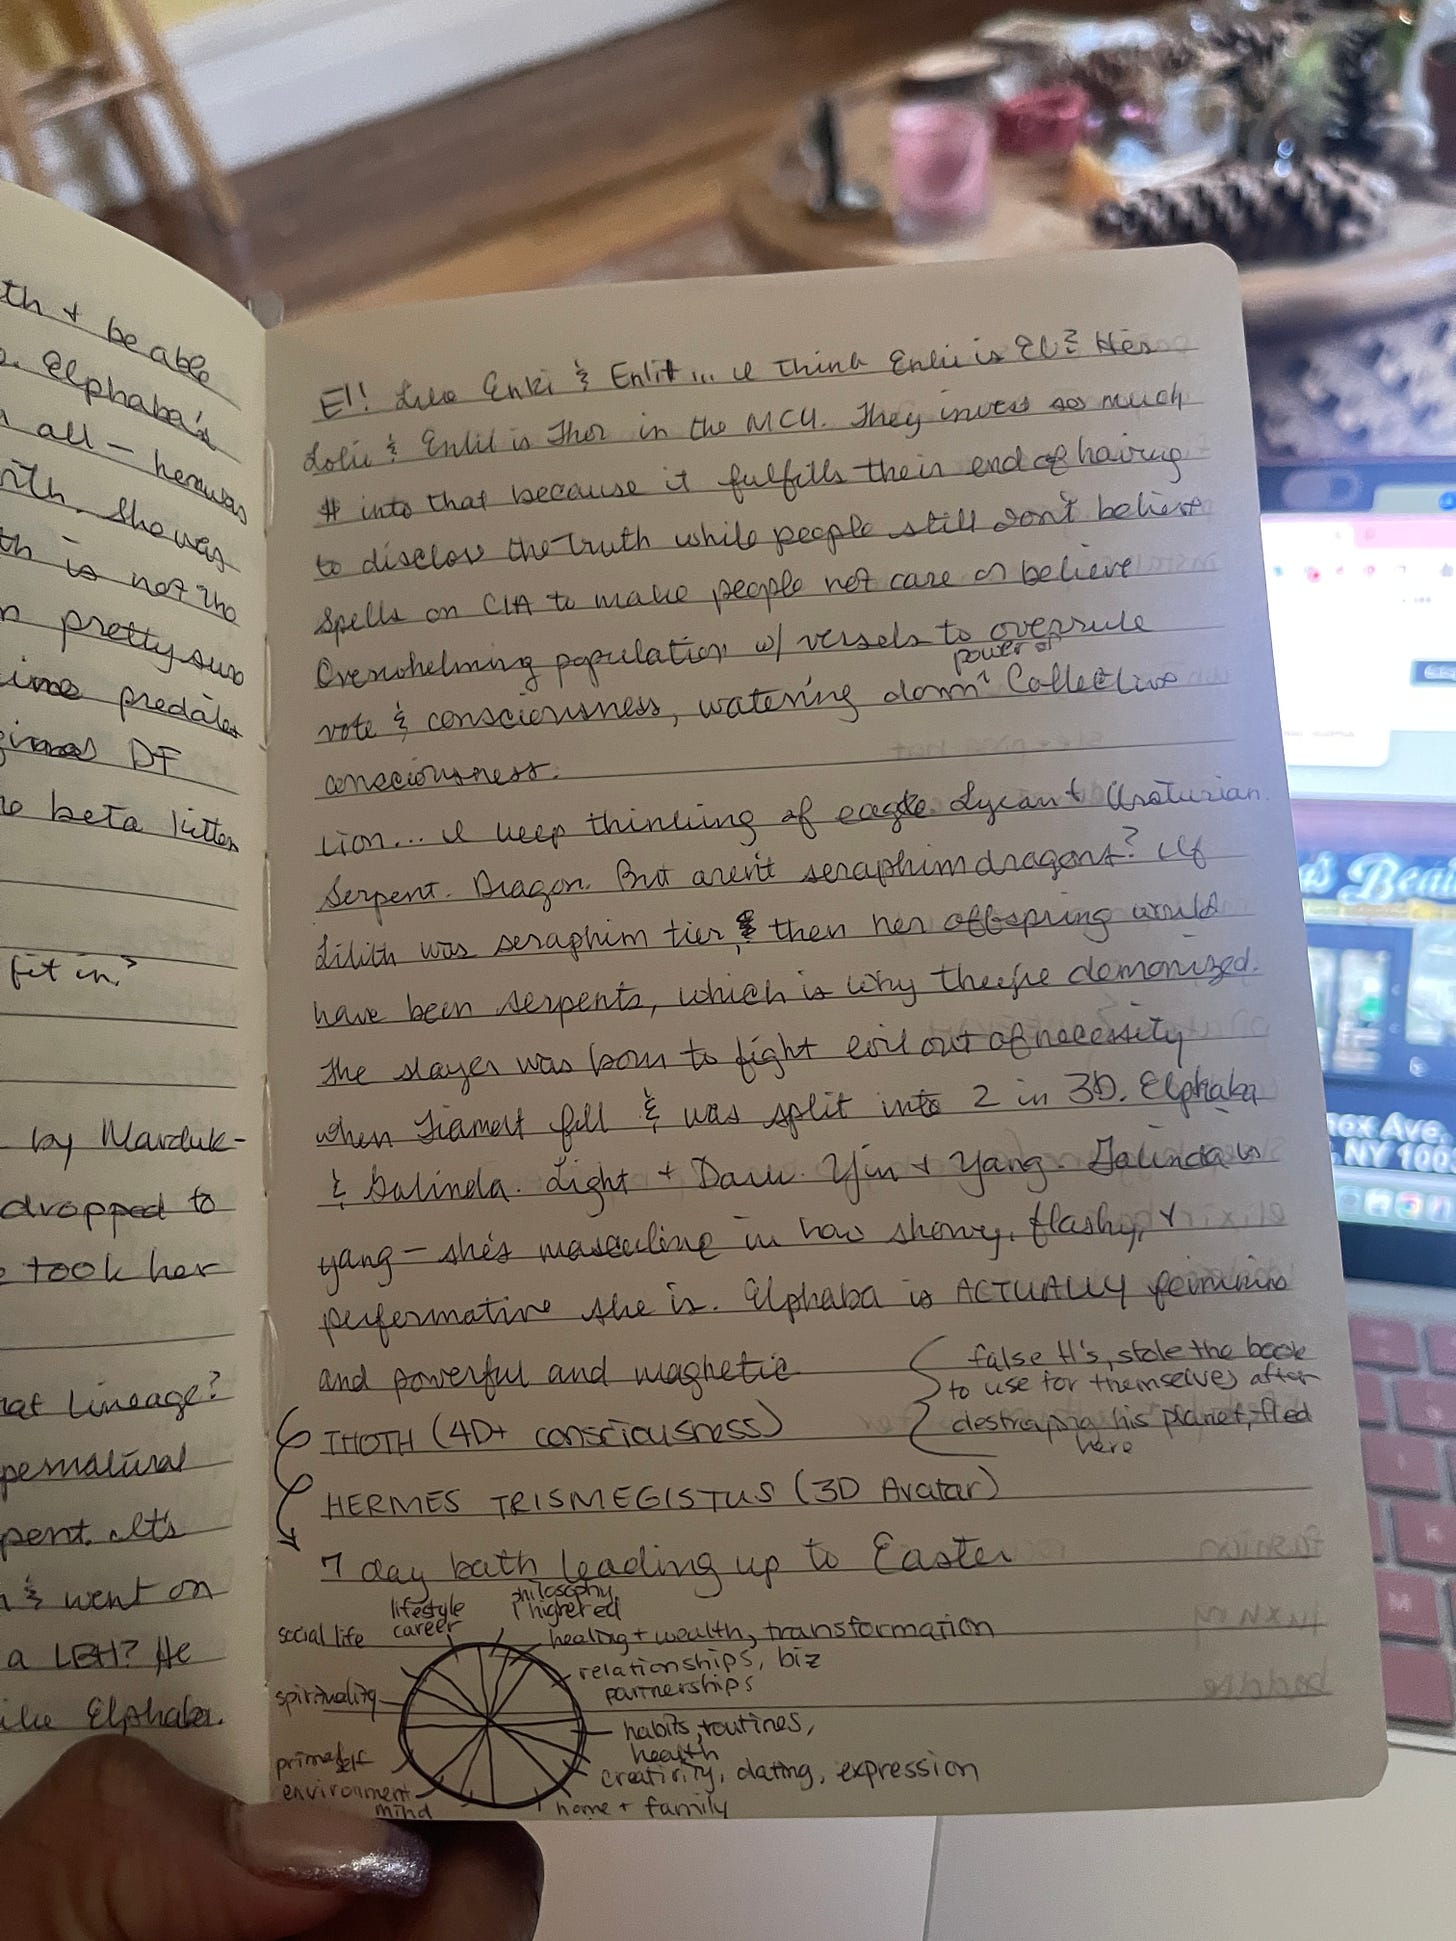 th + be able
Elphaba's
all — her was
nth. She was
th is not the
pretty sure
DF
beta kitten
fit in?
by Marduk-
dropped to
took her
at lineage?
pernatural
pent. It's
& went on
a LBH? He
like Elphaba.
El! Like Enki & Enlil... I think Enki is El & He's
Loki & Enlil is Thor in the MCU. They invest so much
$ into that because it fulfills their end of having
to disclose the truth while people still don't believe
Spells on CIA to make people not care or believe
Overwhelming population w/ vessels to overrule
vote & consciousness, watering down power of Collective
consciousness.
Lion... I keep thinking of eagle Lycan +
Serpent. Dragon. But aren't seraphim dragons? If
Lilith was seraphim tier, & then her offspring would
have been serpents, which is why they're demonized.
The slayer was born to fight evil out of necessity
when Tiamat fell & was split into 2 in 3D. Elphaba
& Galinda. Light + Dark. Yin + Yang. Galinda is
yang — she's masculine in how showy, flashy, +
performative she is. Elphaba is ACTUALLY feminine
and powerful and magnetic
false H's, stole the book
to use for themselves after
destroying his planet, fled
here
THOTH (4D+ consciousness)
HERMES TRISMEGISTUS (3D Avatar)
7 day bath leading up to Easter
lifestyle
career
philosophy
higher ed
social life
healing + wealth, transformation
relationships, biz
partnerships
spirituality
habits, routines,
health
primal self
creativity, dating, expression
environment
mind
home + family
Ave.
NY 100